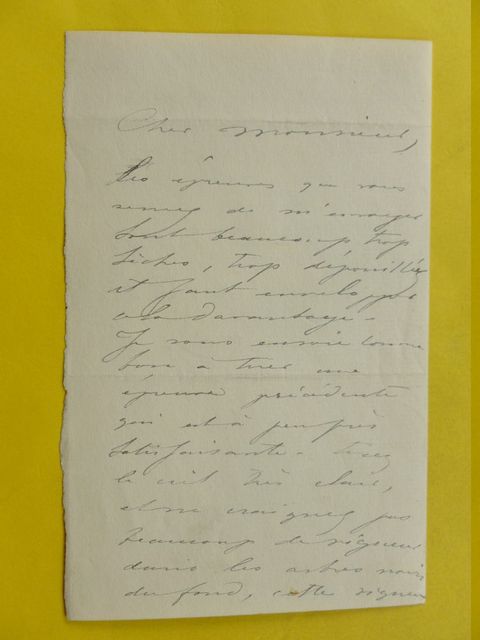 Cher Monsieur,
Les épreuves que vous
venez de m'envoyer
sont beaucoup trop
sèches, trop dépouillées
il faut envelopper
cela davantage -
Je vous envoie comme
bon à tirer une
épreuve précédente
qui est à peu près
satisfaisante - tirez
le ciel très clair,
et ne craignez pas
beaucoup de vigueur
dans les arbres noirs
du fond, cette vigueur